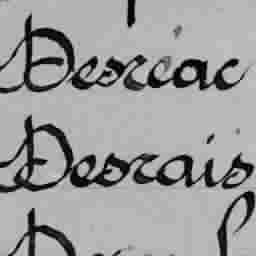 Desreac
Desrais